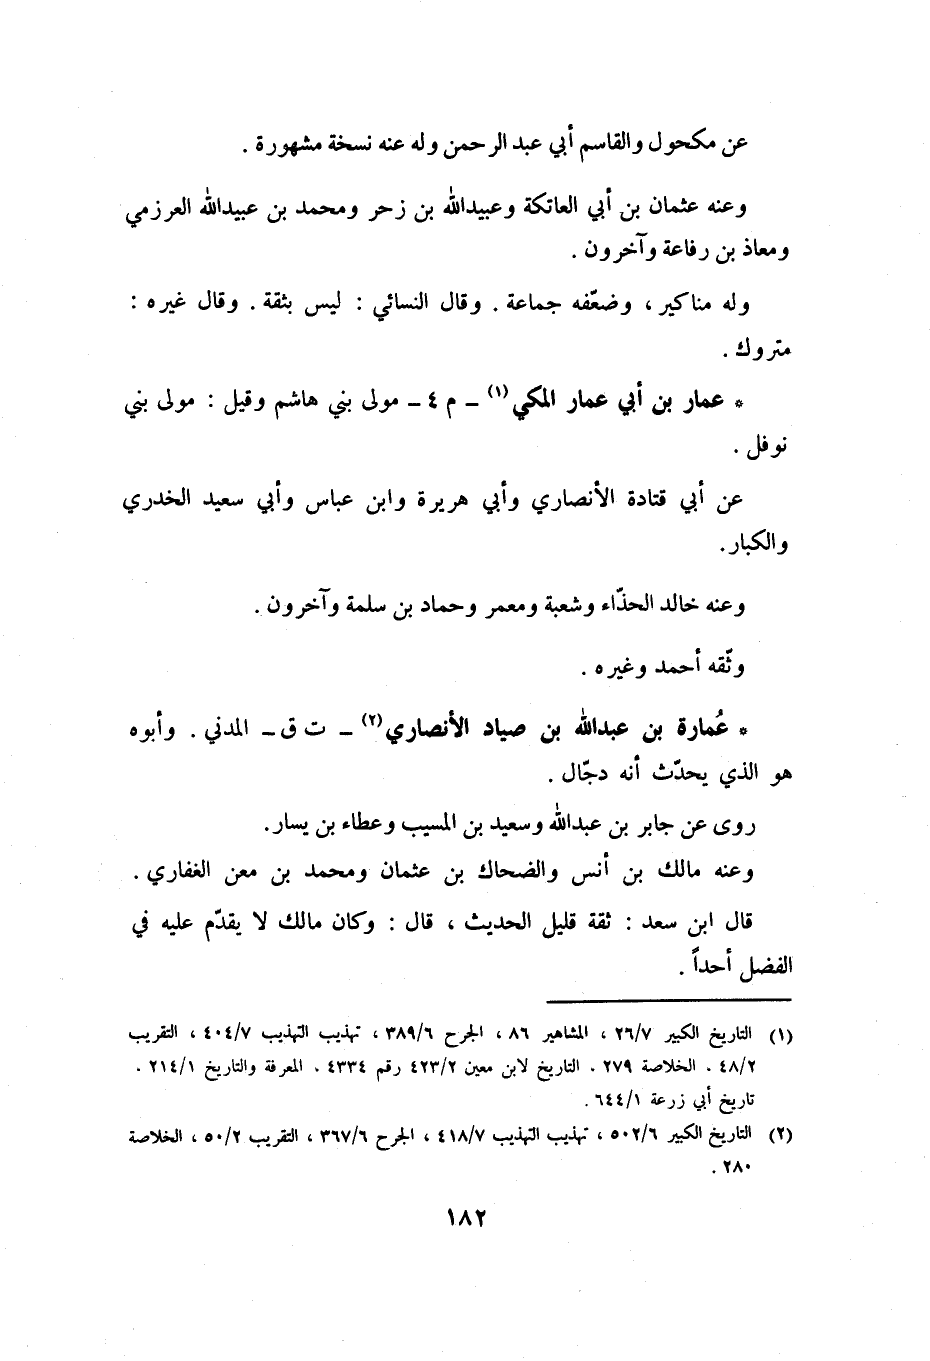 عن مكحول والقاسم أبي عبد الرحمن وله عنه نسخة مشهورة .
وعنه عثمان بن أبي العاتكة وعبيدالله بن زحر ومحمد بن عبيدالله العرزمي
ومعاذ بن رفاعة وآخرون .
وله مناكير ، وضعّفه جماعة . وقال النسائي : ليس بثقة . وقال غيره :
متروك .
* عمار بن أبي عمار المكي (١) ــ م ٤ ــ مولى بني هاشم وقيل : مولى بني
نوفل .
عن أبي قتادة الأنصاري وأبي هريرة وابن عباس وأبي سعيد الخدري
والكبار .
وعنه خالد الحذّاء وشعبة ومعمر وحماد بن سلمة وآخرون .
وثّقه أحمد وغيره .
* عُمارة بن عبدالله بن صياد الأنصاري (٢) ــ ت ق ــ المدني . وأبوه
هو الذي يحدّث أنه دجّال .
روى عن جابر بن عبدالله وسعيد بن المسيب وعطاء بن يسار .
وعنه مالك بن أنس والضحاك بن عثمان ومحمد بن معن الغفاري .
قال ابن سعد : ثقة قليل الحديث ، قال : وكان مالك لا يقدّم عليه في
الفضل أحداً .
(١) التاريخ الكبير ٢٦/٧ ، المشاهير ٨٦ ، الجرح ٣٨٩/٦ ، تهذيب التهذيب ٤٠٤/٧ ، التقريب
٤٨/٢ . الخلاصة ٢٧٩ . التاريخ لابن معين ٤٢٣/٢ رقم ٤٣٣٤ . المعرفة والتاريخ ٢١٤/١ .
تاريخ أبي زرعة ٦٤٤/١ .
(٢) التاريخ الكبير ٥٠٢/٦ ، تهذيب التهذيب ٤١٨/٧ ، الجرح ٣٦٧/٦ ، التقريب ٥٠/٢ ، الخلاصة
٢٨٠ .
١٨٢